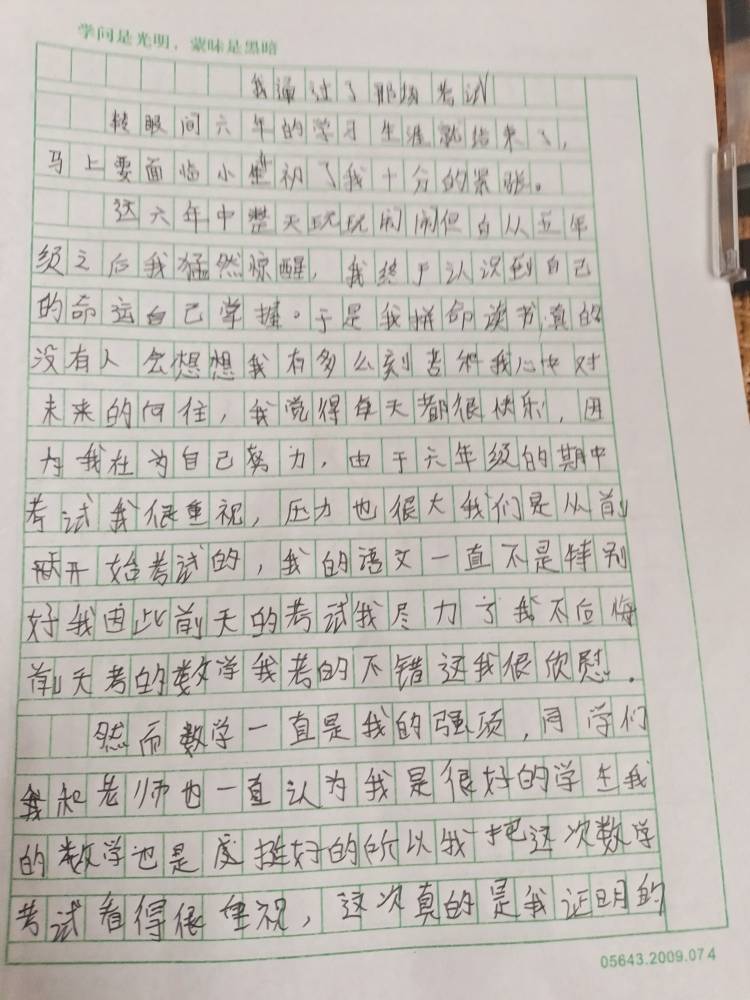 学问是光明，蒙昧是黑暗
我通过了那场考试
转眼间六年的学习生涯就结束了，
马上要面临小升初了我十分的紧张。
这六年中整天玩玩闹闹但自从五年
级之后我猛然惊醒，我终于认识到自己
的命运自己掌握。于是我拼命读书，真的
没有人会想想我有多么刻苦和我心中对
未来的向往，我觉得每天都很快乐，因
为我在为自己努力，由于六年级的期中
考试我很重视，压力也很大我们是从前
天开始考试的，我的语文一直不是特别
好我因此前天的考试我尽力了我不后悔
前天考的数学我考的不错这我很欣慰。
然而数学一直是我的强项，同学们
和老师也一直认为我是很好的学生我
的数学也是挺好的所以我把这次数学
考试看得很重视，这次真的是我证明的
05643.2009.074